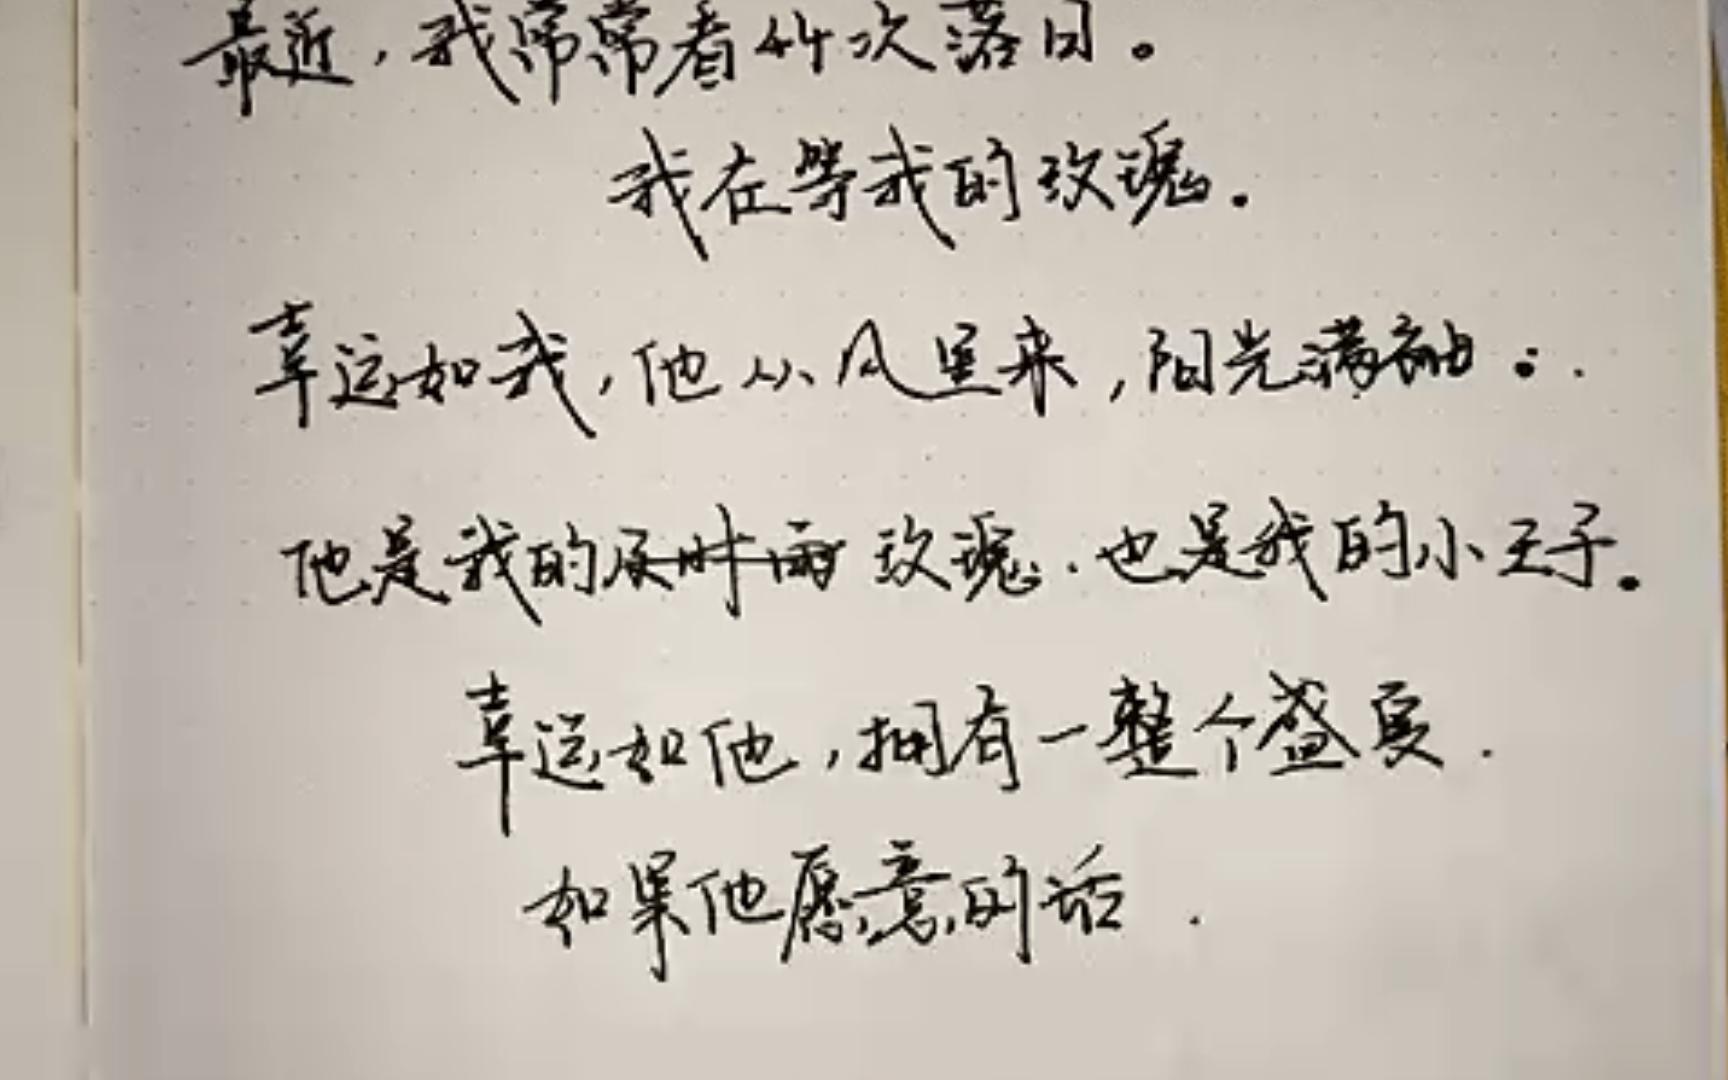 最近，我常常看44次落日。
我在等我的玫瑰.
幸运如我，他从风里来，阳光满袖
他是我的及时雨 玫瑰.也是我的小王子。
幸运如他，拥有一整个盛夏.
如果他愿意的话.